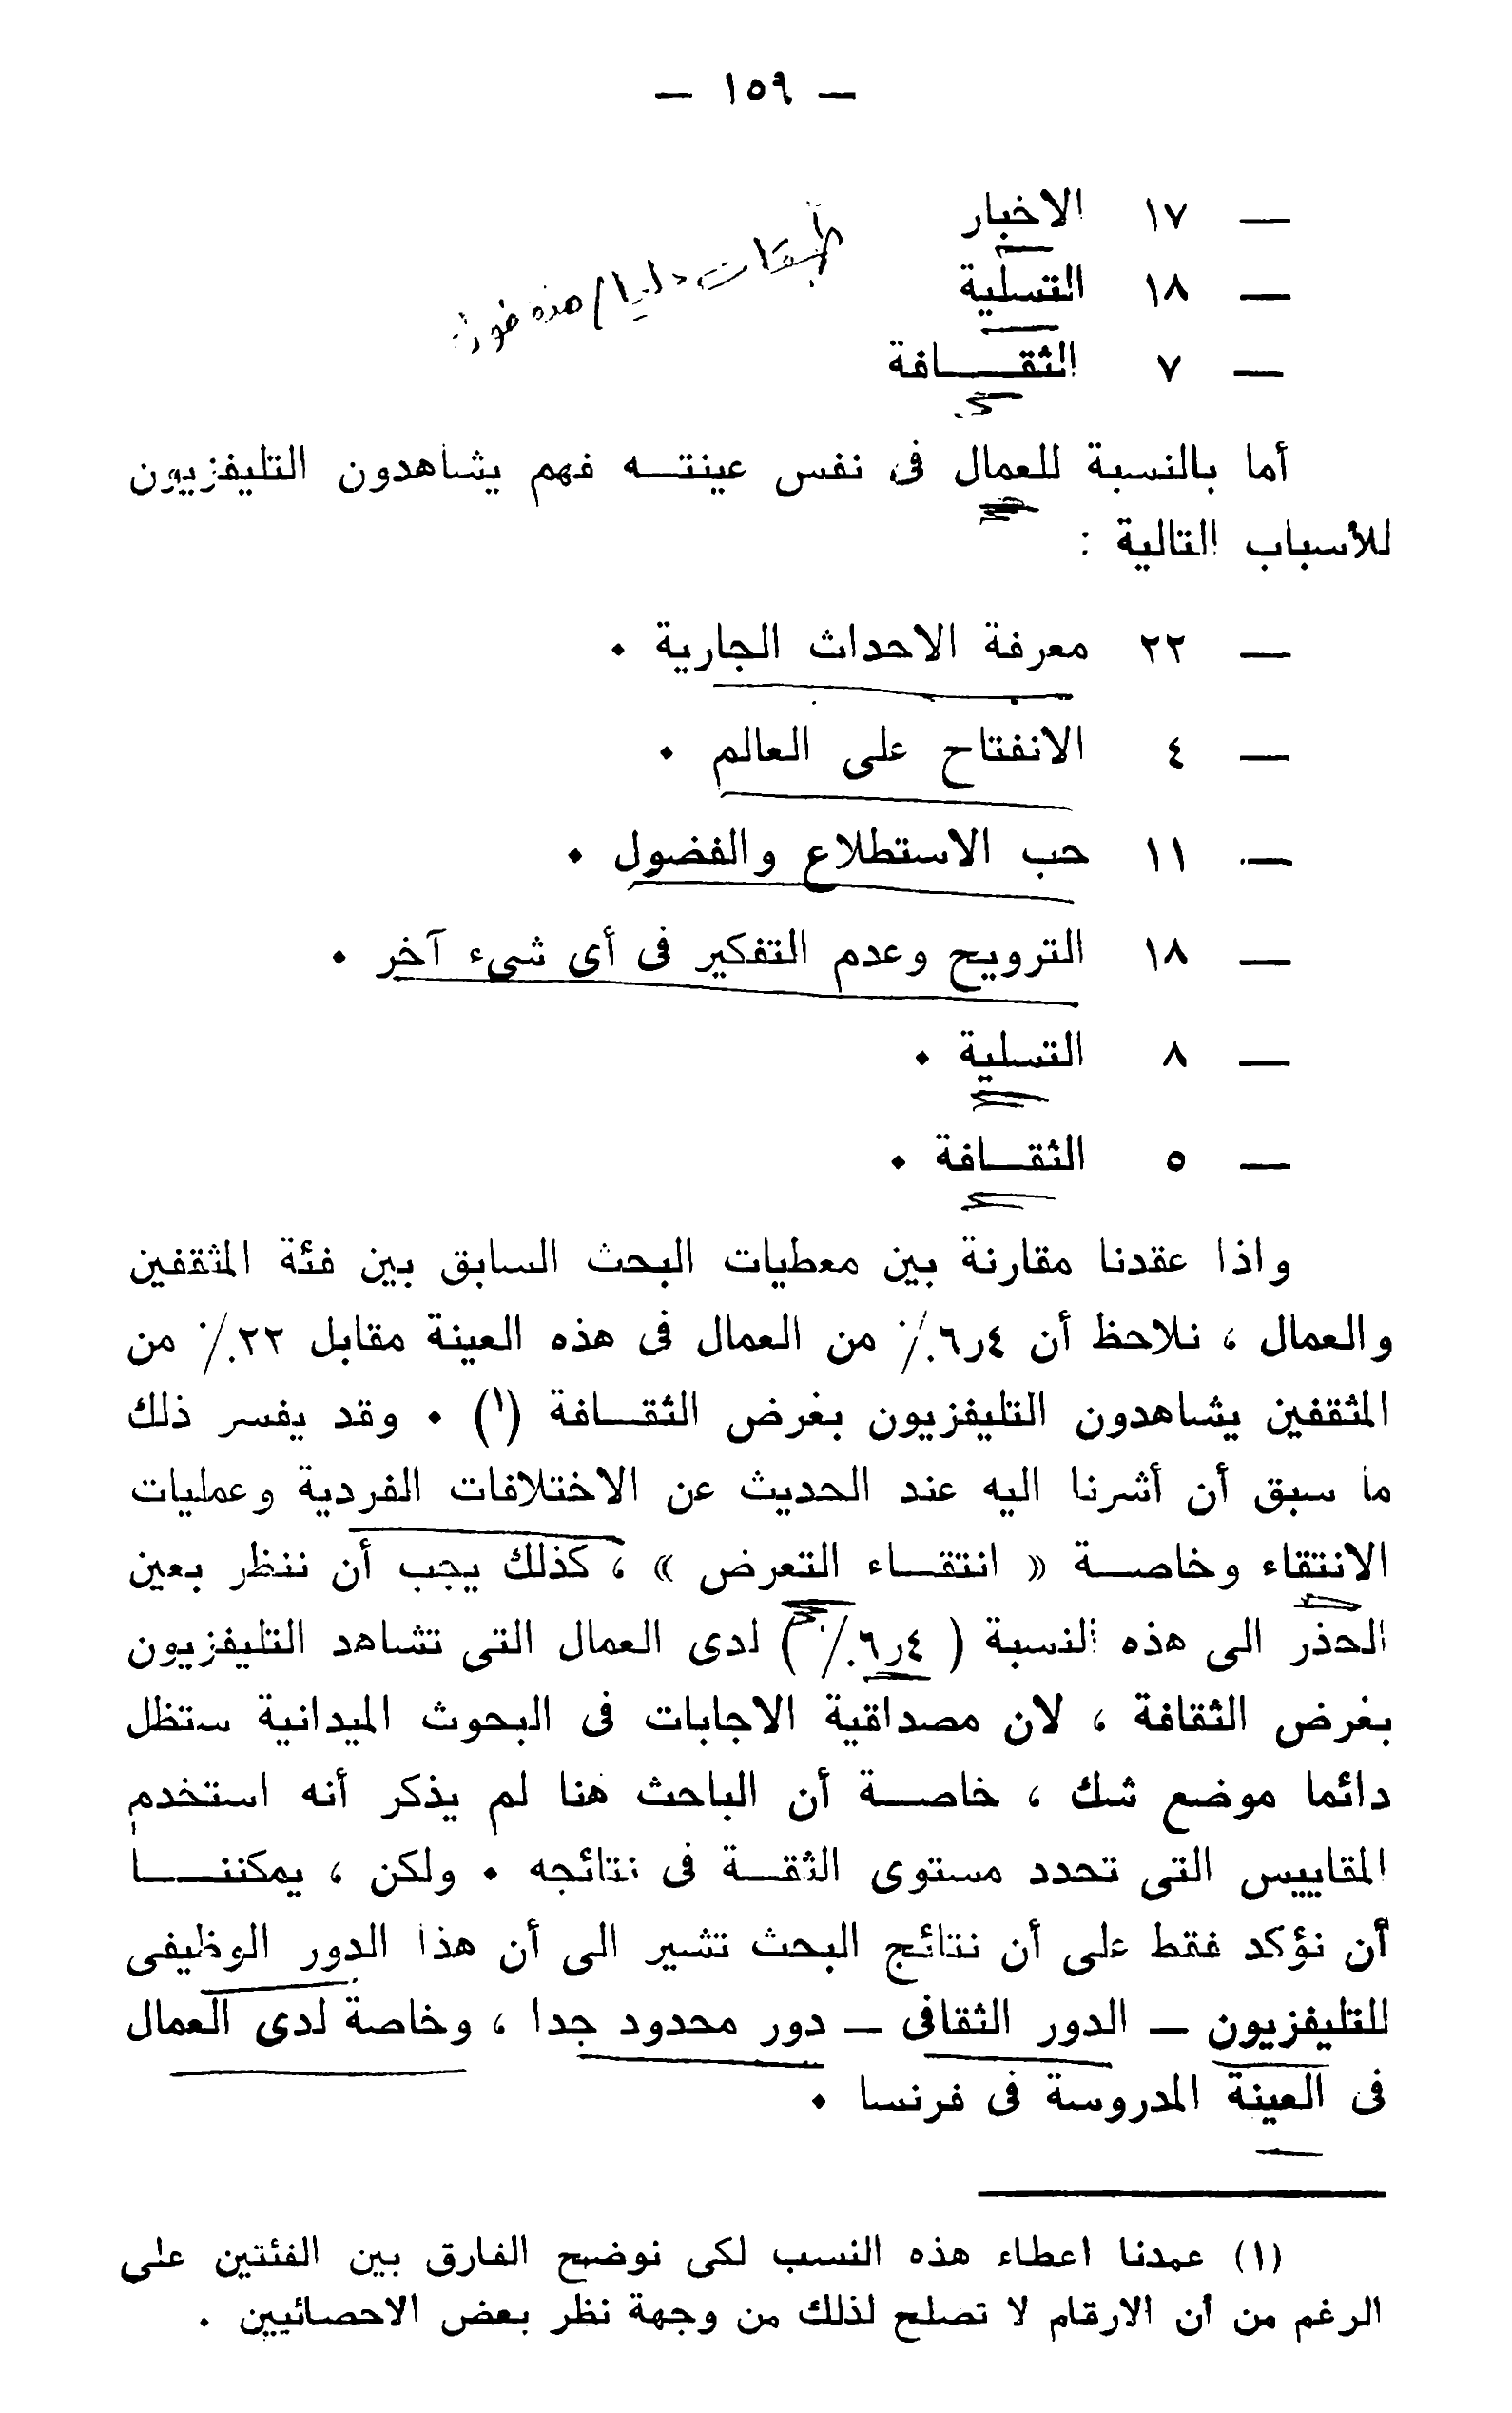 — ١٥٩ —
— ١٧ الاخبار
— ١٨ التسلية
— ٧ الثقـــافة
طبقات دنيا / هذه
أما بالنسبة للعمال فى نفس عينتـه فهم يشاهدون التليفزيون
للأسباب التالية :
— ٢٢ معرفة الاحداث الجارية ٠
— ٤ الانفتاح على العالم ٠
— ١١ حب الاستطلاع والفضول ٠
— ١٨ الترويح وعدم التفكير فى أى شىء آخر ٠
— ٨ التسلية ٠
— ٥ الثقـافة ٠
واذا عقدنا مقارنة بين معطيات البحث السابق بين فئة المثقفين
والعمال ، نلاحظ أن ٤ر٦٪ من العمال فى هذه العينة مقابل ٢٢٪ من
المثقفين يشاهدون التليفزيون بغرض الثقـافة (١) ٠ وقد يفسر ذلك
ما سبق أن أشرنا اليه عند الحديث عن الاختلافات الفردية وعمليات
الانتقاء وخاصـة « انتقـاء التعرض » ، كذلك يجب أن ننظر بعين
الحذر الى هذه النسبة ( ٤ر٦٪ ) لدى العمال التى تشاهد التليفزيون
بغرض الثقافة ، لان مصداقية الاجابات فى البحوث الميدانية ستظل
دائما موضع شك ، خاصـة أن الباحث هنا لم يذكر أنه استخدم
المقاييس التى تحدد مستوى الثقـة فى نتائجه ٠ ولكن ، يمكننـــا
أن نؤكد فقط على أن نتائج البحث تشير الى أن هذا الدور الوظيفى
للتليفزيون — الدور الثقافى — دور محدود جدا ، وخاصة لدى العمال
فى العينة المدروسة فى فرنسا ٠
(١) عمدنا اعطاء هذه النسب لكى نوضح الفارق بين الفئتين على
الرغم من أن الارقام لا تصلح لذلك من وجهة نظر بعض الاحصائيين ٠